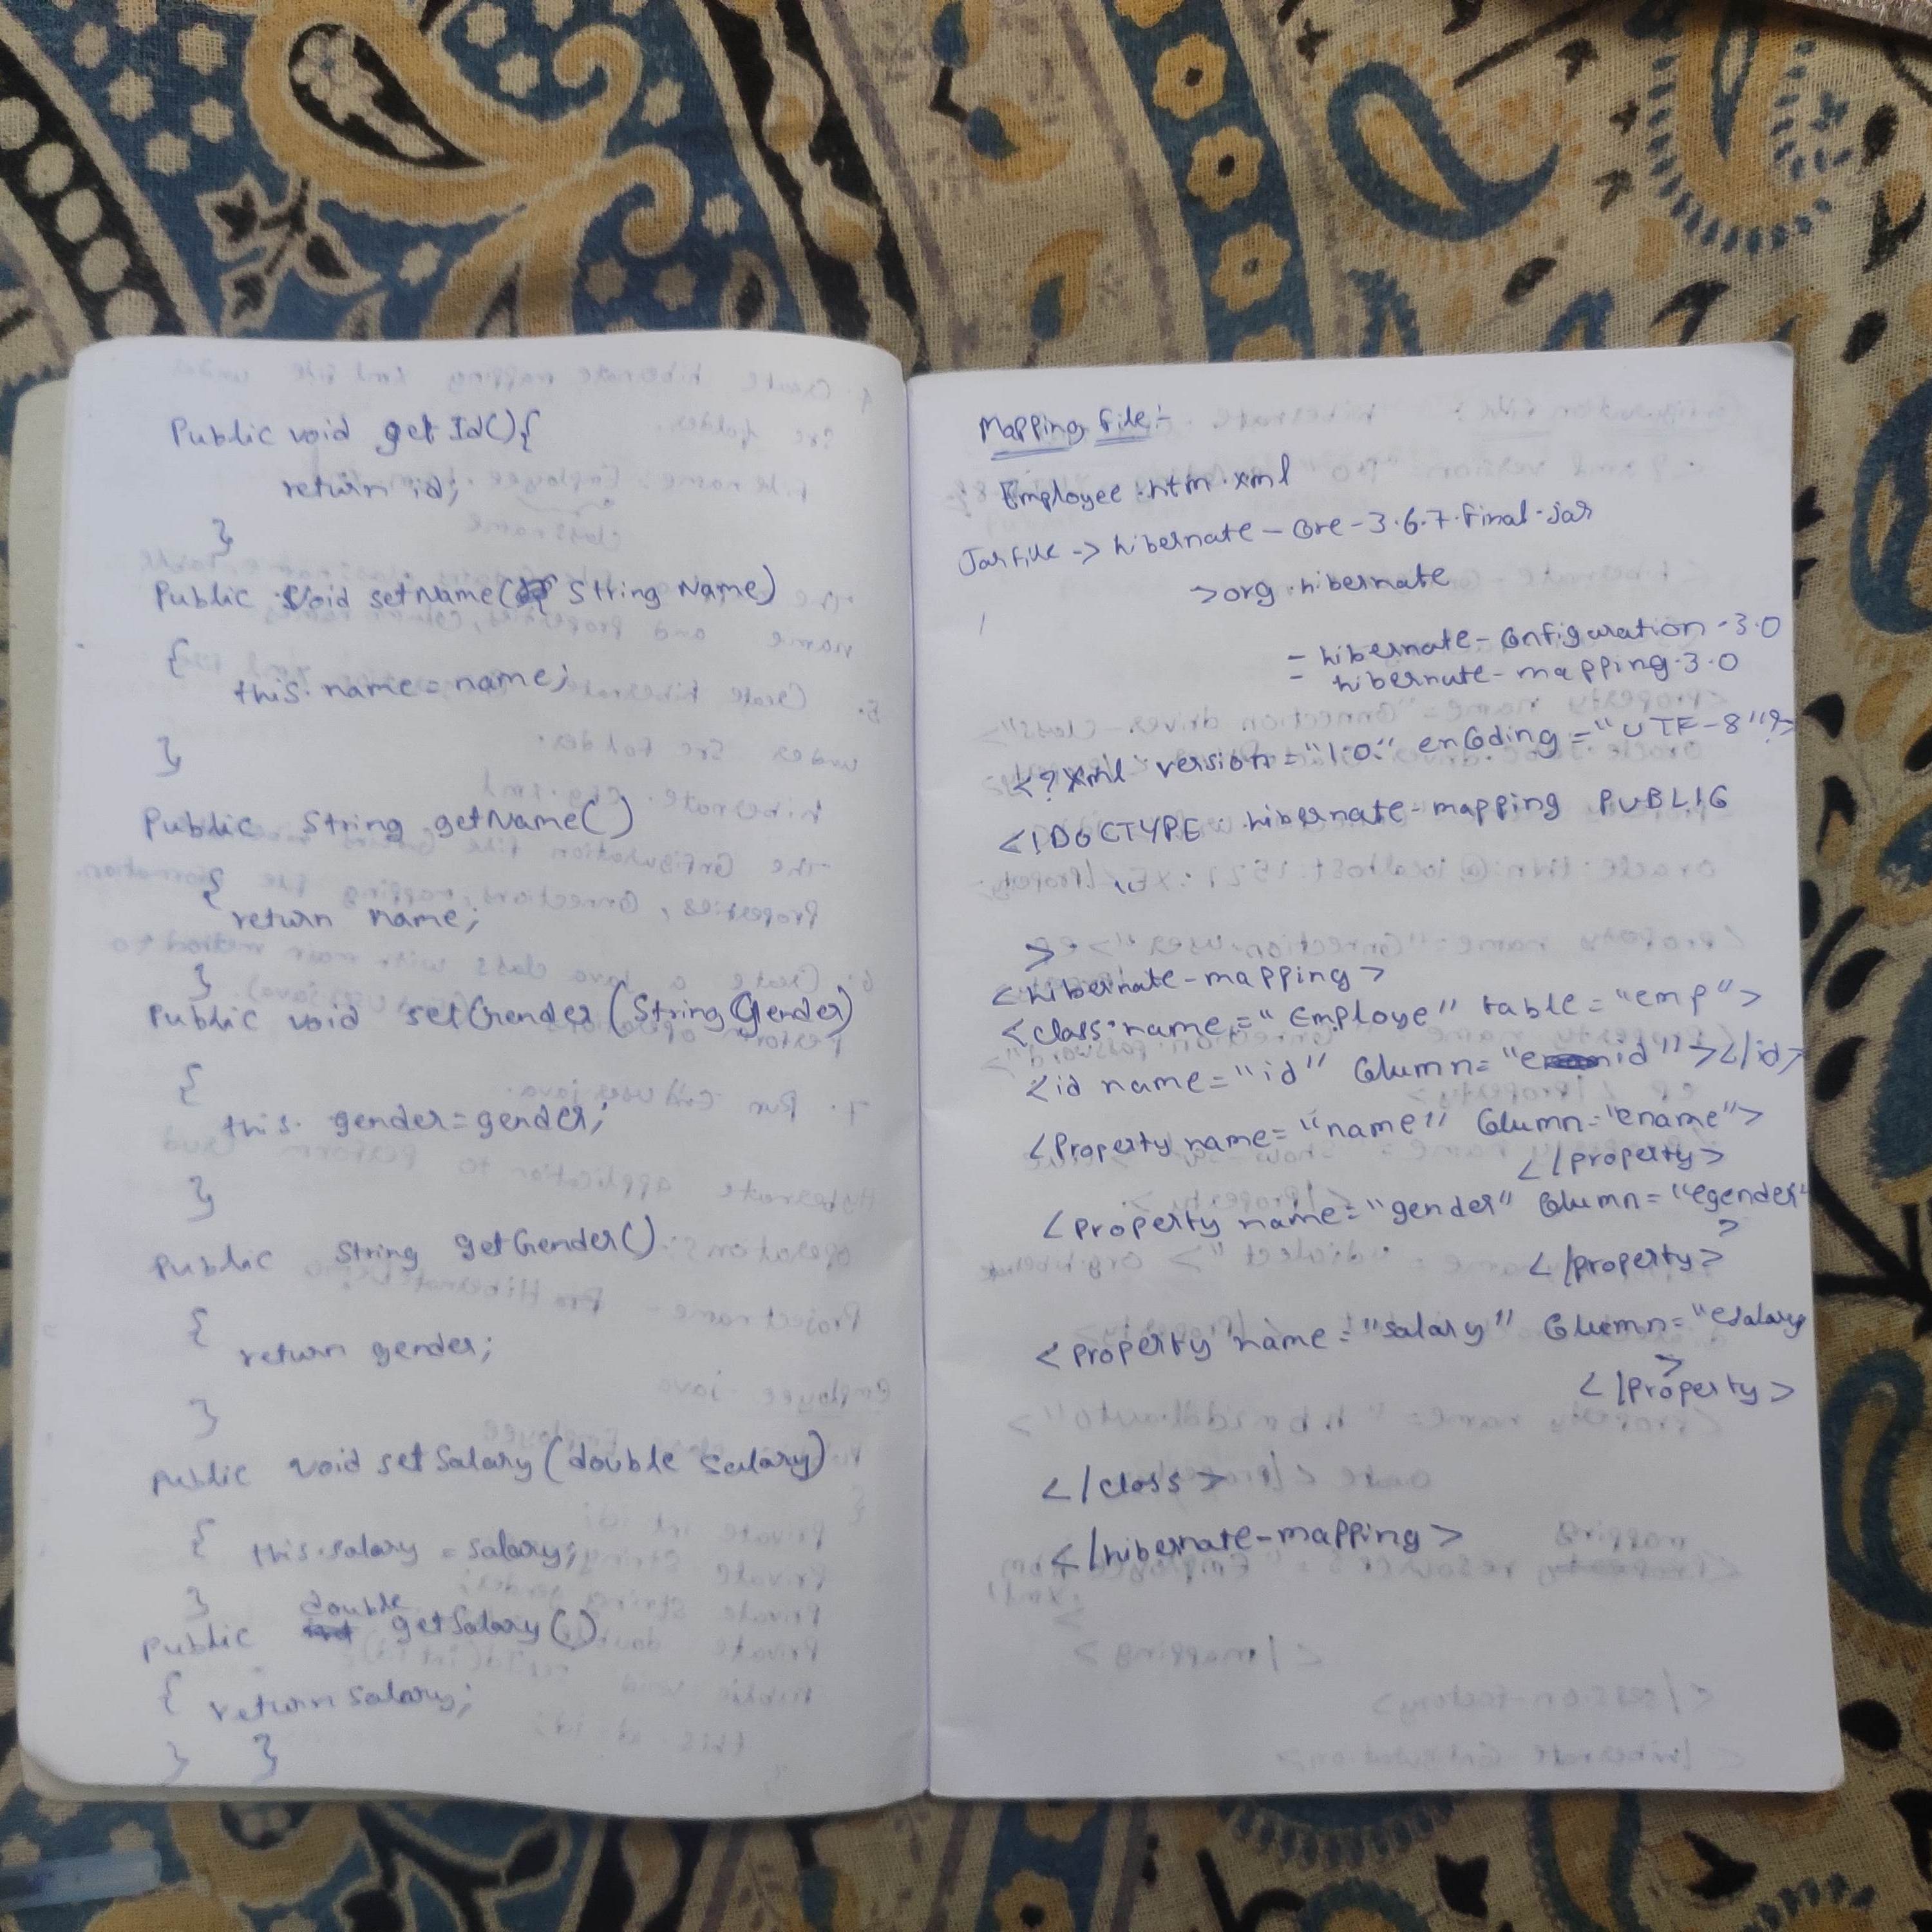 Public void getId(){
return id;
}
Public void setName( String Name)
{
this.name=name;
}
Public String getName()
{
return name;
}
Public void setGender (String Gender)
{
this. gender=gender;
}
Public String getGender()
{
return gender;
}
Public void setSalary (double Salary)
{ this.salary = salary;
}
double
Public getSalary()
{ return salary;
} }
Mapping File:-
Employee.htm.xml
Jar file -> hibernate-core-3.6.7.Final.jar
>org.hibernate
- hibernate-Configuration-3.0
- hibernate-mapping.3.0
<?xml version="1.0" encoding="UTF-8"?>
<!DOCTYPE hibernate-mapping PUBLIC
>
<hibernate-mapping>
<class name="Employe" table="emp">
<id name="id" Column="eid"></id>
<Property name="name" Column="ename">
</property>
<Property name="gender" Column="egender"
>
</property>
<Property name="salary" Column="esalary
>
</property>
</class>
</hibernate-mapping>